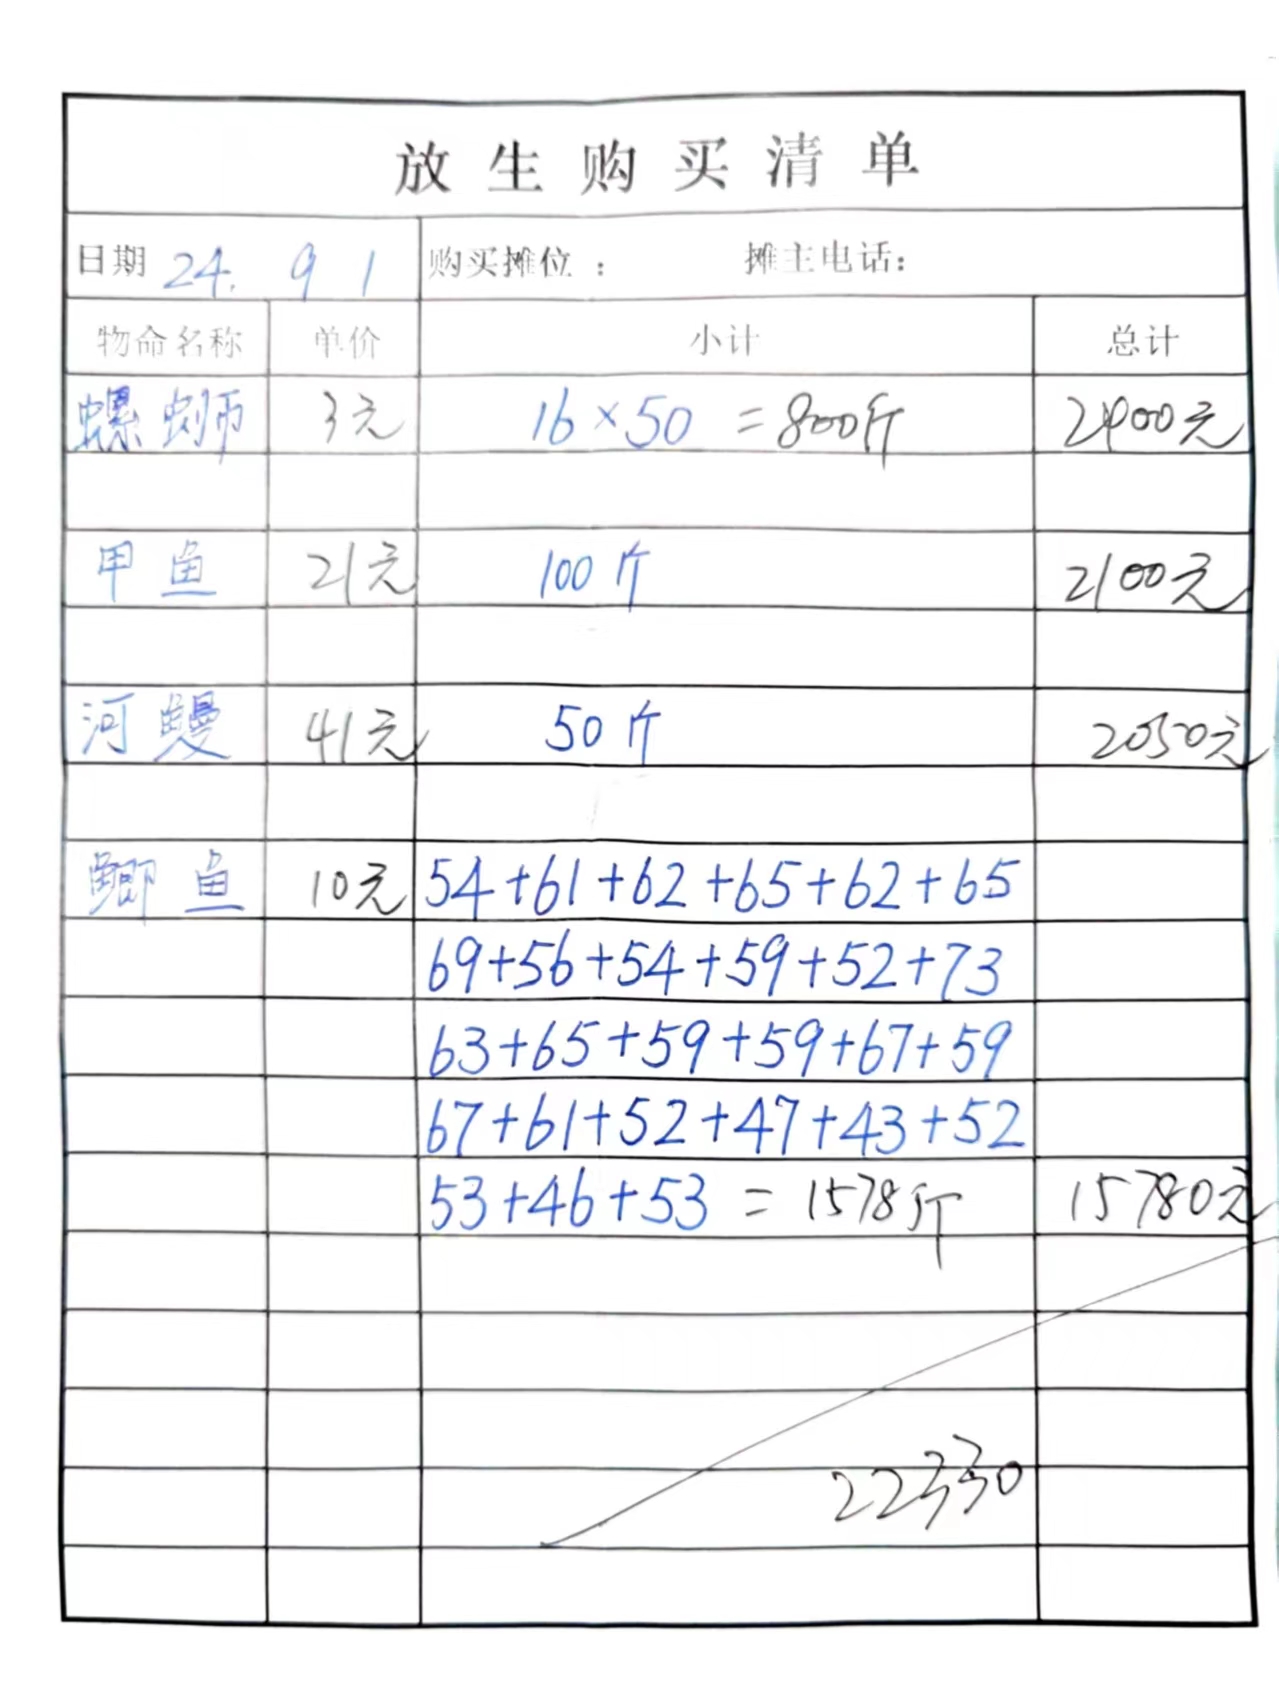 放生购买清单
日期 24. 9 1 购买摊位： 摊主电话：
物命名称 单价 小计 总计
螺蛳 3元 16×50 =800斤 2400元
甲鱼 21元 100斤 2100元
河鳗 41元 50斤 2050元
鲫鱼 10元 54+61+62+65+62+65
69+56+54+59+52+73
63+65+59+59+67+59
67+61+52+47+43+52
53+46+53 = 1578斤 15780元
22330